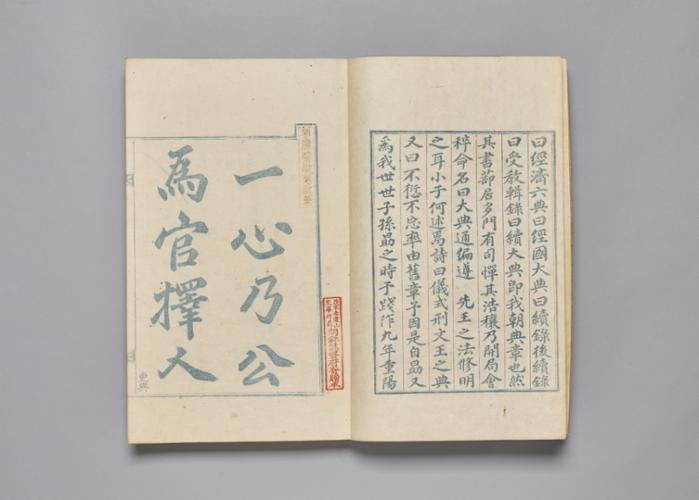 曰經濟六典曰經國大典曰續錄後續錄
曰受教輯錄曰續大典卽我朝典章也然
其書節居多門有司憚其浩穰乃開局會
稡命名曰大典通編遵 先王之法修明
之耳小子何述焉詩曰儀式刑文王之典
又曰不愆不忘率由舊章予因是自勗又
爲我世世子孫勗之時予踐阼九年重陽
茂朱赤裳山
史庫所藏
朝鮮總督府寄贈本
一心乃公
爲官擇人
吏典